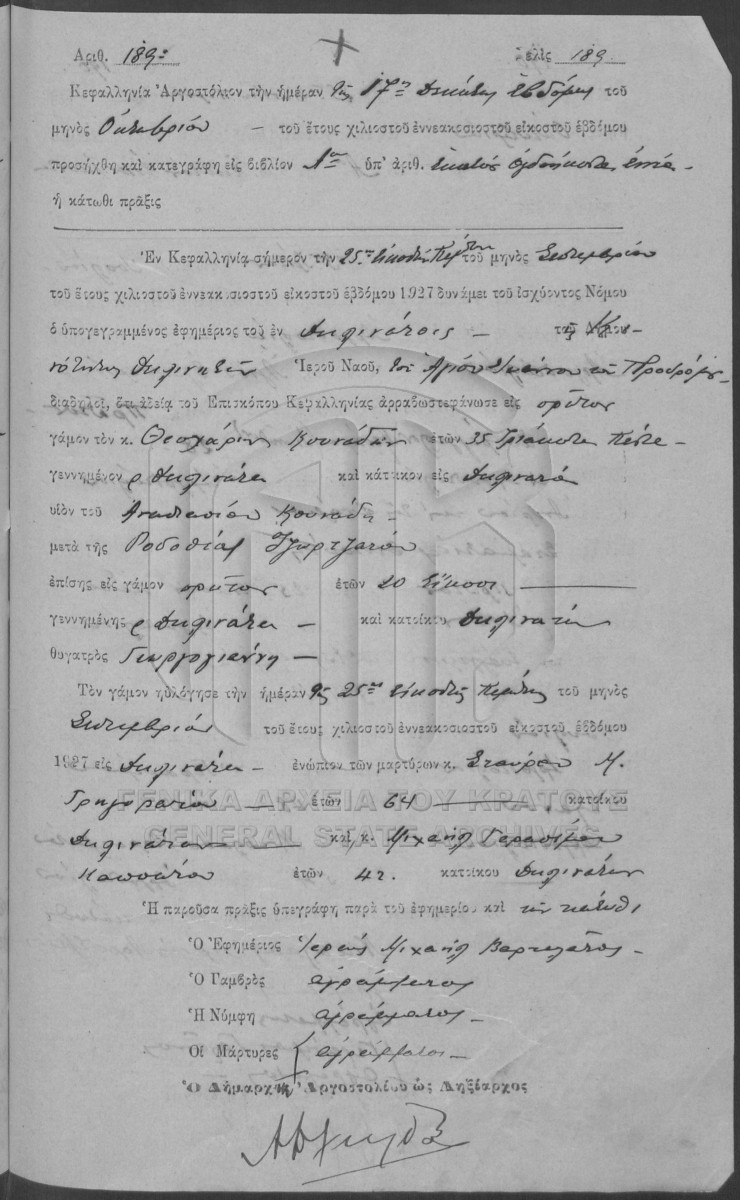 Ἀριθ. 189 Σελὶς 189
Κεφαλληνία Ἀργοστόλιον τὴν ἡμέραν τῆς 17ην Δεκάτης ἑβδόμης τοῦ
μηνὸς Ὀκτωβρίου — τοῦ ἔτους χιλιοστοῦ ἐννεακοσιοστοῦ εἰκοστοῦ ἑβδόμου
προσήχθη καὶ κατεγράφη εἰς βιβλίον 1ον ὑπ' ἀριθ. ἑκατὸν ὀγδοήκοντα ἐννέα
ἡ κάτωθι πρᾶξις
Ἐν Κεφαλληνίᾳ σήμερον τὴν 25ην Εἰκοστὴν Πέμπτην τοῦ μηνὸς Σεπτεμβρίου
τοῦ ἔτους χιλιοστοῦ ἐννεακοσιοστοῦ εἰκοστοῦ ἑβδόμου 1927 δυνάμει τοῦ ἰσχύοντος Νόμου
ὁ ὑπογεγραμμένος ἐφημέριος τοῦ ἐν Διλινάτοις — τῆς Κοι-
νότητος Διλινάτων Ἱεροῦ Ναοῦ, τοῦ Ἁγίου Ἰωάννου τοῦ Προδρόμου
διαδηλοῖ, ὅτι ἀδείᾳ τοῦ Ἐπισκόπου Κεφαλληνίας ἀρραβωστεφάνωσε εἰς πρῶτον
γάμον τὸν κ. Θεοχάρην Κουνάδην ἐτῶν 35 Τριάκοντα Πέντε —
γεννημένον Διλινάτα καὶ κάτοικον εἰς Διλινάτα
υἱὸν τοῦ Ἀναστασίου Κουνάδη —
μετὰ τῆς
ἐπίσης εἰς γάμον πρῶτον ἐτῶν 20 Εἴκοσι
γεννημένης Διλινάτα — καὶ κατοίκου Διλινάτων
θυγατρὸς Γεωργογιάννη —
Τὸν γάμον ηὐλόγησε τὴν ἡμέραν τῆς 25ην Εἰκοστῆς Πέμπτης τοῦ μηνὸς
Σεπτεμβρίου τοῦ ἔτους χιλιοστοῦ ἐννεακοσιοστοῦ εἰκοστοῦ ἑβδόμου
1927 εἰς Διλινάτα — ἐνώπιον τῶν μαρτύρων κ. Σταύρου Μ.
Γρηγοράτου — ἐτῶν 64 — κατοίκου
Διλινάτων — καὶ κ. Μιχαὴλ Γερασίμου
Καππάτου ἐτῶν 42. κατοίκου Διλινάτων
Ἡ παροῦσα πρᾶξις ὑπεγράφη παρὰ τοῦ ἐφημερίου καὶ τῶν κάτωθι
Ὁ Ἐφημέριος Ἱερεὺς Μιχαὴλ —
Ὁ Γαμβρὸς ἀγράμματος
Ἡ Νύμφη ἀγράμματος —
Οἱ Μάρτυρες ἀγράμματοι —
Ὁ Δήμαρχος Ἀργοστολίου ὡς Ληξίαρχος
ΓΕΝΙΚΑ ΑΡΧΕΙΑ ΤΟΥ ΚΡΑΤΟΥΣ
GENERAL STATE ARCHIVES